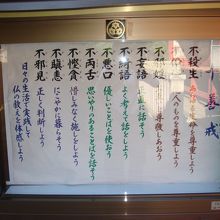 善戒
不殺生 生命を尊重しよう
人のものを尊重しよう
不邪婬 尊敬しあおう
不妄語 正直に話そう
不綺語 よく考えて話をしよう
不悪口 優しいことばを使おう
不両舌 思いやりのあることばを話そう
不慳貪 惜しみなく施しをしよう
不瞋恚 にこやかに暮らそう
不邪見 正しく判断しよう
日々の生活で実践して
仏の教えを体得しよう